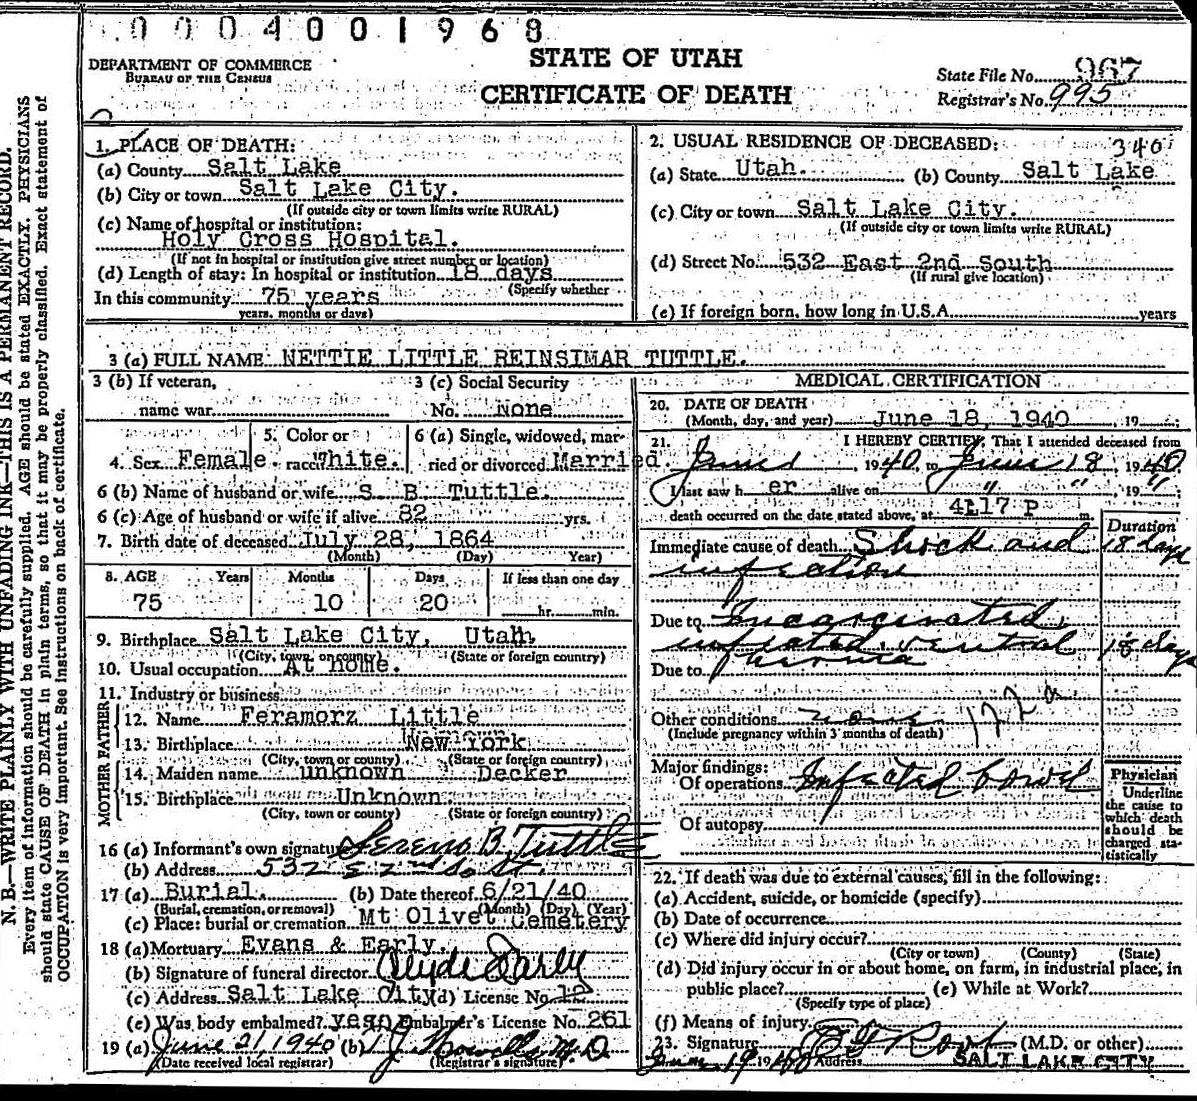 0004001968
DEPARTMENT OF COMMERCE
BUREAU OF THE CENSUS
STATE OF UTAH
CERTIFICATE OF DEATH
State File No. 967
Registrar's No. 995
N. B.—WRITE PLAINLY WITH UNFADING INK—THIS IS A PERMANENT RECORD.
Every item of information should be carefully supplied. AGE should be stated EXACTLY. PHYSICIANS
should state CAUSE OF DEATH in plain terms, so that it may be properly classified. Exact statement of
OCCUPATION is very important. See instructions on back of certificate.
1. PLACE OF DEATH:
(a) County Salt Lake
(b) City or town Salt Lake City.
(If outside city or town limits write RURAL)
(c) Name of hospital or institution:
Holy Cross Hospital.
(If not in hospital or institution give street number or location)
(d) Length of stay: In hospital or institution 18 days
(Specify whether
In this community 75 years
years, months or days)
2. USUAL RESIDENCE OF DECEASED: 340
(a) State Utah. (b) County Salt Lake
(c) City or town Salt Lake City.
(If outside city or town limits write RURAL)
(d) Street No. 532 East 2nd South
(If rural give location)
(e) If foreign born, how long in U.S.A. years
3 (a) FULL NAME NETTIE LITTLE REINSIMAR TUTTLE.
3 (b) If veteran,
name war
3 (c) Social Security
No. None
4. Sex Female.
5. Color or
race White.
6 (a) Single, widowed, mar-
ried or divorced Married.
6 (b) Name of husband or wife S B Tuttle.
6 (c) Age of husband or wife if alive 82 yrs.
7. Birth date of deceased July 28, 1864
(Month) (Day) Year)
8. AGE Years Months Days If less than one day
75 10 20 hr. min.
9. Birthplace Salt Lake City, Utah
(City, town, or county) (State or foreign country)
10. Usual occupation At home.
11. Industry or business
FATHER
12. Name Feramorz Little
13. Birthplace New York
(City, town or county) (State or foreign country)
MOTHER
14. Maiden name unknown Decker
15. Birthplace Unknown
(City, town or county) (State or foreign country)
16 (a) Informant's own signature Sereno B. Tuttle
(b) Address 532 E 2nd So St.
17 (a) Burial. (b) Date thereof 6/21/40
(Burial, cremation, or removal) (Month) (Day) (Year)
(c) Place: burial or cremation Mt Olivet Cemetery
18 (a) Mortuary Evans & Early.
(b) Signature of funeral director Clyde Early
(c) Address Salt Lake City (d) License No. 12
(e) Was body embalmed? yes Embalmer's License No. 261
19 (a) June 21, 1940 (b) T J Howells M.D
(Date received local registrar) (Registrar's signature)
MEDICAL CERTIFICATION
20. DATE OF DEATH
(Month, day, and year) June 18, 1940 19
21. I HEREBY CERTIFY, That I attended deceased from
June 1, 1940, to June 18, 1940.
I last saw h er alive on " " 19 "
death occurred on the date stated above, at 4:17 P m.
Duration
Immediate cause of death Shock and 18 days
infection
Due to Incarcerated,
infected ventral 18 days
Due to hernia
Other conditions none
(Include pregnancy within 3 months of death)
Major findings:
Of operations Infected bowel
Of autopsy
Physician
Underline
the cause to
which death
should be
charged sta-
tistically
22. If death was due to external causes, fill in the following:
(a) Accident, suicide, or homicide (specify)
(b) Date of occurrence
(c) Where did injury occur?
(City or town) (County) (State)
(d) Did injury occur in or about home, on farm, in industrial place, in
public place? (e) While at Work?
(Specify type of place)
(f) Means of injury
23. Signature (M.D. or other)
June 19 1940 Address SALT LAKE CITY